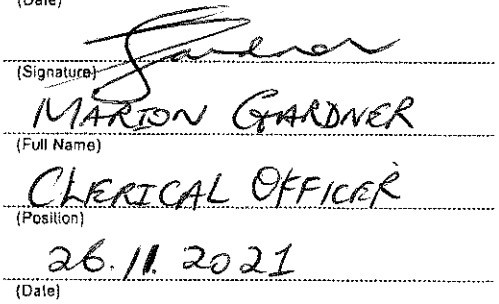 (Date)
(Signature)
MARION GARDNER
(Full Name)
CLERICAL OFFICER
(Position)
26.11.2021
(Date)